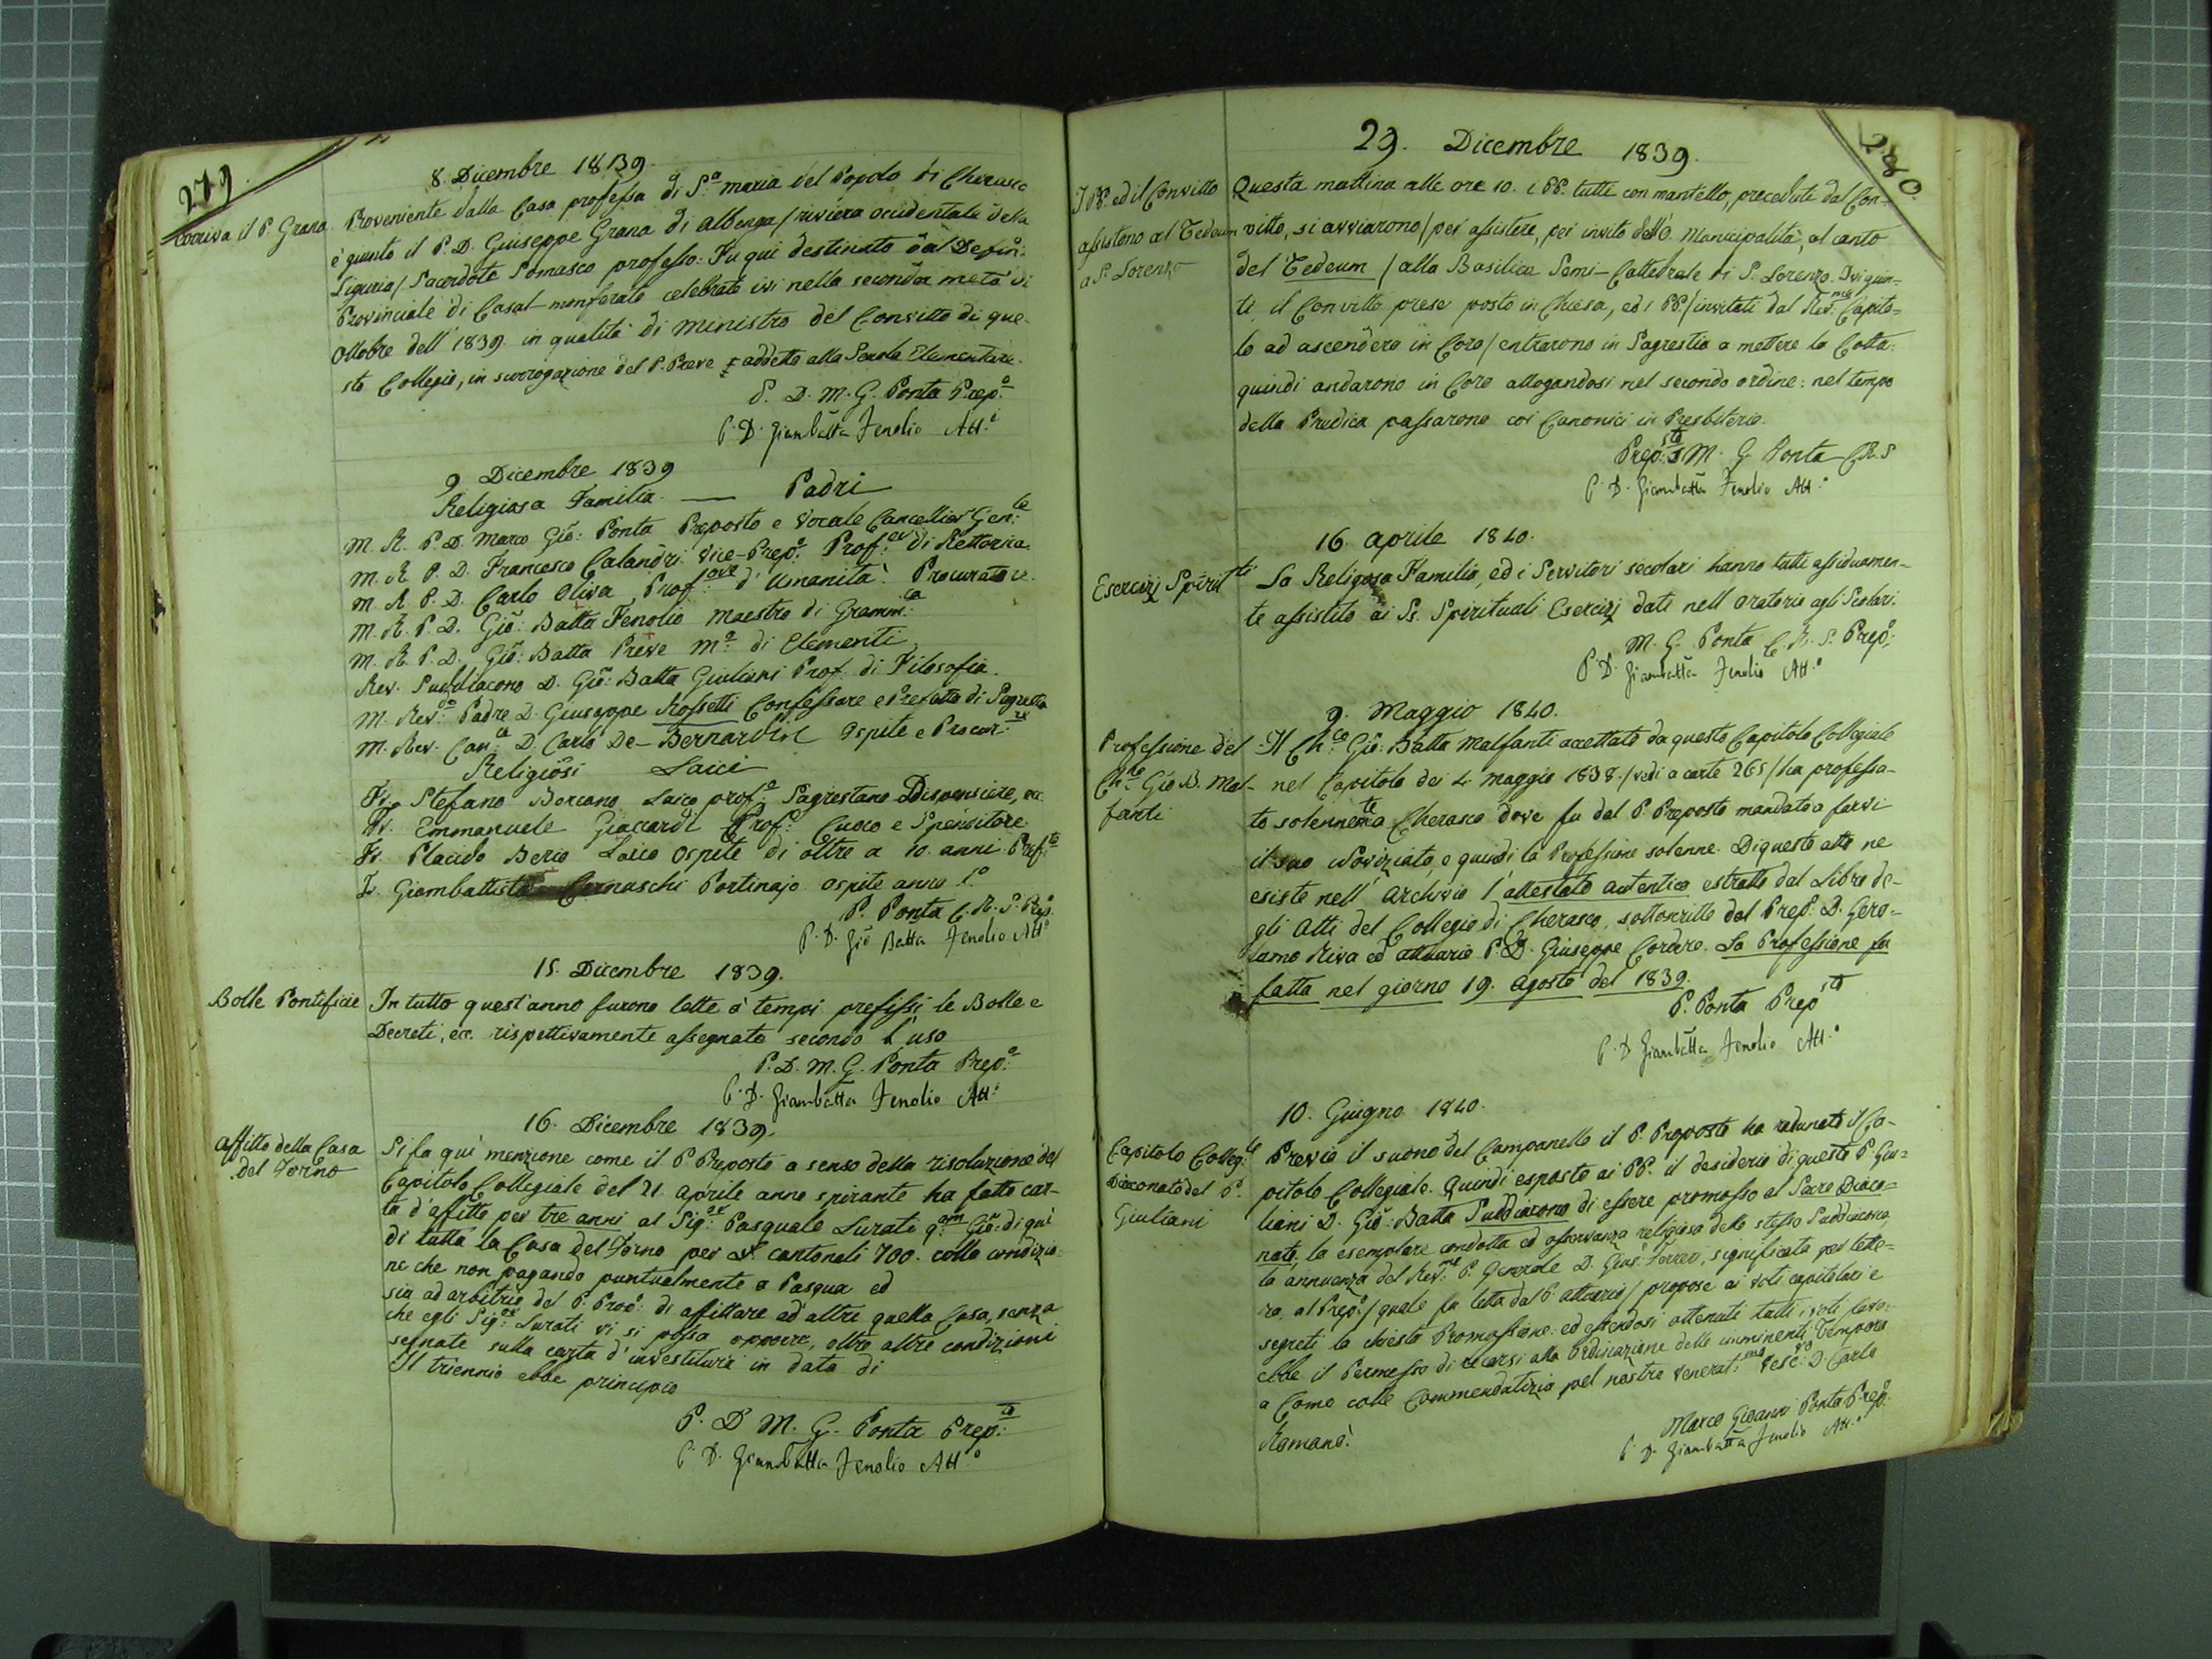 279
8 Dicembre 1839.
Arriva il P. Grana
Proveniente dalla Casa professa di S.a Maria del Popolo di Cherasco
è giunto il P. D. Giuseppe Grana di Albenga /riviera occidentale della
Liguria/ Sacerdote Somasco professo. Fu qui destinato dal Defin:o
Provinciale di Casal-monferato celebrato ivi nella seconda metà di
Ottobre dell'1839. in qualità di Ministro del Convitto di que-
sto Collegio, in surrogazione del P. Preve addetto alla Scuola Elementare.
P. D. M. G. Ponta Prep:o
P. D. Giambatta Fenolio Att:o
9 Dicembre 1839
Religiosa Familia. — Padri
M. R. P. D. Marco Gio: Ponta Preposto e Vocale Cancellier Gen:le
M. R. P. D. Francesco Calandri Vice-Prep:o Prof:re di Rettorica.
M. R. P. D. Carlo Oliva, Prof:ore d'Umanità. Procuratore.
M. R. P. D. Gio: Batta Fenolio Maestro di Gramm:ca
M. R. P. D. Gio: Batta Preve M:o di Elementi
Rev. Suddiacono D. Gio: Batta Giuliani Prof. di Filosofia.
M. Rev:do Padre D. Giuseppe Rossetti Confessore e Prefetto di Sagrestia
M. Rev. Can:co D. Carlo De-Bernardis Ospite e Procur:re
Religiosi Laici
Fr. Stefano Borcano Laico prof:o Sagrestano Dispensiere, ecc.
Fr. Emmanuele Giaccardi Prof: Cuoco e Spenditore
Fr. Placido Berio Laico Ospite di oltre a 10. anni Prof:to
Fr. Giambattista Cernuschi Portinajo ospite anno 1.o
P. Ponta C. R. S. Prep.o
P. D. Gio Batta Fenolio Att:o
15. Dicembre 1839.
Bolle Pontificie
In tutto quest'anno furono lette a' tempi prefissi le Bolle e
Decreti, ecc. rispettivamente assegnato secondo l'uso
P. D. M. G. Ponta Prep:o
P. D. Giambatta Fenolio Att:o
16. Dicembre 1839.
Affitto della Casa
del Forno
Si fa qui menzione come il P. Preposto a senso della risoluzione del
Capitolo Collegiale del 21. Aprile anno spirante ha fatto car-
ta d'affitto per tre anni al Sig:or Pasquale Lurati q:am Gio: di qui
di tutta la Casa del Forno per cantonali 700. colla condizio-
ne che non pagando puntualmente a Pasqua ed
sia ad arbitrio del P. Proc: di affittare ad altri quella Casa, senza
che egli Sig:or Lurati vi si possa opporre, oltre altre condizioni
segnate sulla carta d'investitura in data di
Il triennio ebbe principio
P. D M. G. Ponta Prep:to
P. D. Giambatta Fenolio Att:o
280.
29. Dicembre 1839.
I PP. ed il Convitto
assistono al Tedeum
a S. Lorenzo
Questa mattina alle ore 10. i PP. tutti con mantello, precedute dal Con-
vitto, si avviarono /per assistere, per invito dell' Municipalità, al canto
del Tedeum / alla Basilica Semi-Cattedrale di S. Lorenzo. Ivi giun-
ti il Convitto prese posto in Chiesa, ed i PP. /invitati dal Rev:mo Capito-
lo ad ascendere in Coro/ entrarono in Sagrestia a mettere la Cotta:
quindi andarono in Coro allogandosi nel secondo ordine: nel tempo
della Predica passarono coi Canonici in Presbiterio.
Prep:sto M. G Ponta C.R.S
P. D. Giambatta Fenolio Att:o
16. Aprile 1840.
Esercizj Spirit:li
La Religiosa Familia, ed i Servitori secolari hanno tutti assiduamen-
te assistito ai Ss. Spirituali Esercizj dati nell'Oratorio agli Scolari.
M. G. Ponta C. R. S. Prep:o
P. D. Giambatta Fenolio Att:o
9. Maggio 1840.
Professione del
Ch:co Gio B. Mal-
fanti
Il Ch:co Gio: Batta Malfanti accettato da questo Capitolo Collegiale
nel Capitolo dei 4 Maggio 1838. /vedi a carte 265/ ha professa-
to solennem:te a Cherasco dove fu dal P. Preposto mandato a farvi
il suo Noviziato, e quindi la Professione solenne. Di questo atto ne
esiste nell'Archivio l'attestato autentico estratto dal Libro de-
gli Atti del Collegio di Cherasco, sottoscritto dal Prep: D. Gero-
lamo Riva ed attuario P. D. Giuseppe Cordero. La Professione fu
fatta nel giorno 19. Agosto del 1839.
P. Ponta Prep:sto
P. D Giambatta Fenolio Att:o
10. Giugno 1840.
Capitolo Colleg:le
Diaconato del P.
Giuliani
Previo il suono del Campanello il P. Preposto ha radunato il Ca-
pitolo Collegiale. Quindi esposto ai PP. il desiderio di questo P. Giu-
liani D. Gio: Batta Suddiacono di essere promosso al Sacro Diaco-
nato; la esemplare condotta ed osservanza religiosa dello stesso Suddiacono,
la annuenza del Rev:mo P. Generale D. Gius: Ferreri, significata per lette-
ra al Prep:o / quale fu letta dal P. attuario/ propose ai voti capitolari e
segreti la chiesta Promossione: ed essendosi ottenuti tutti i voti favor:
ebbe il Permesso di recarsi alla Ordinazione delle imminenti Tempora
a Como colle Commendatizia pel nostro Venerat:mo Vesc:vo D Carlo
Romanò.
Marco Giovanni Ponta Prep:o
P. D. Giambatta Fenolio Att:o